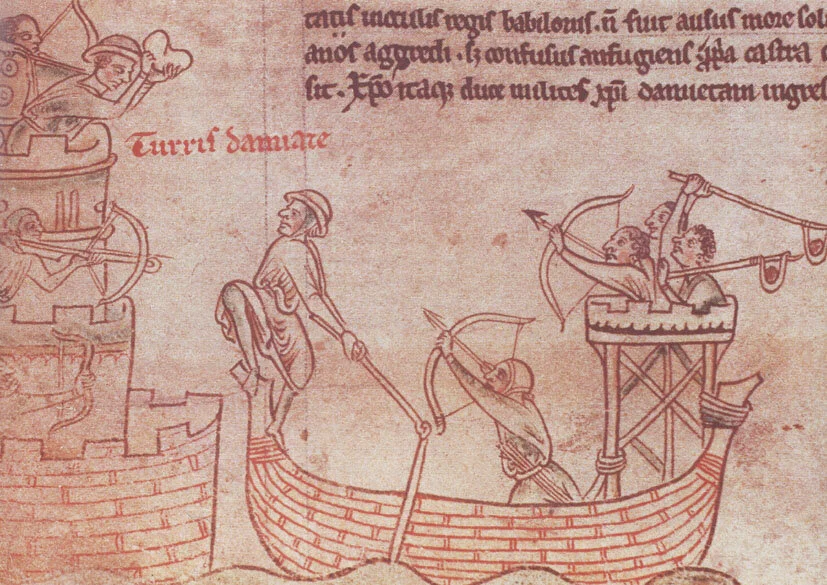 regis babilonis. n̄ fuit ausus more sol
anos aggredi. confusus aufugiens castra
sit. Xp̄o itaq; duce milites xp̄i damietam ingres
Turris damiate